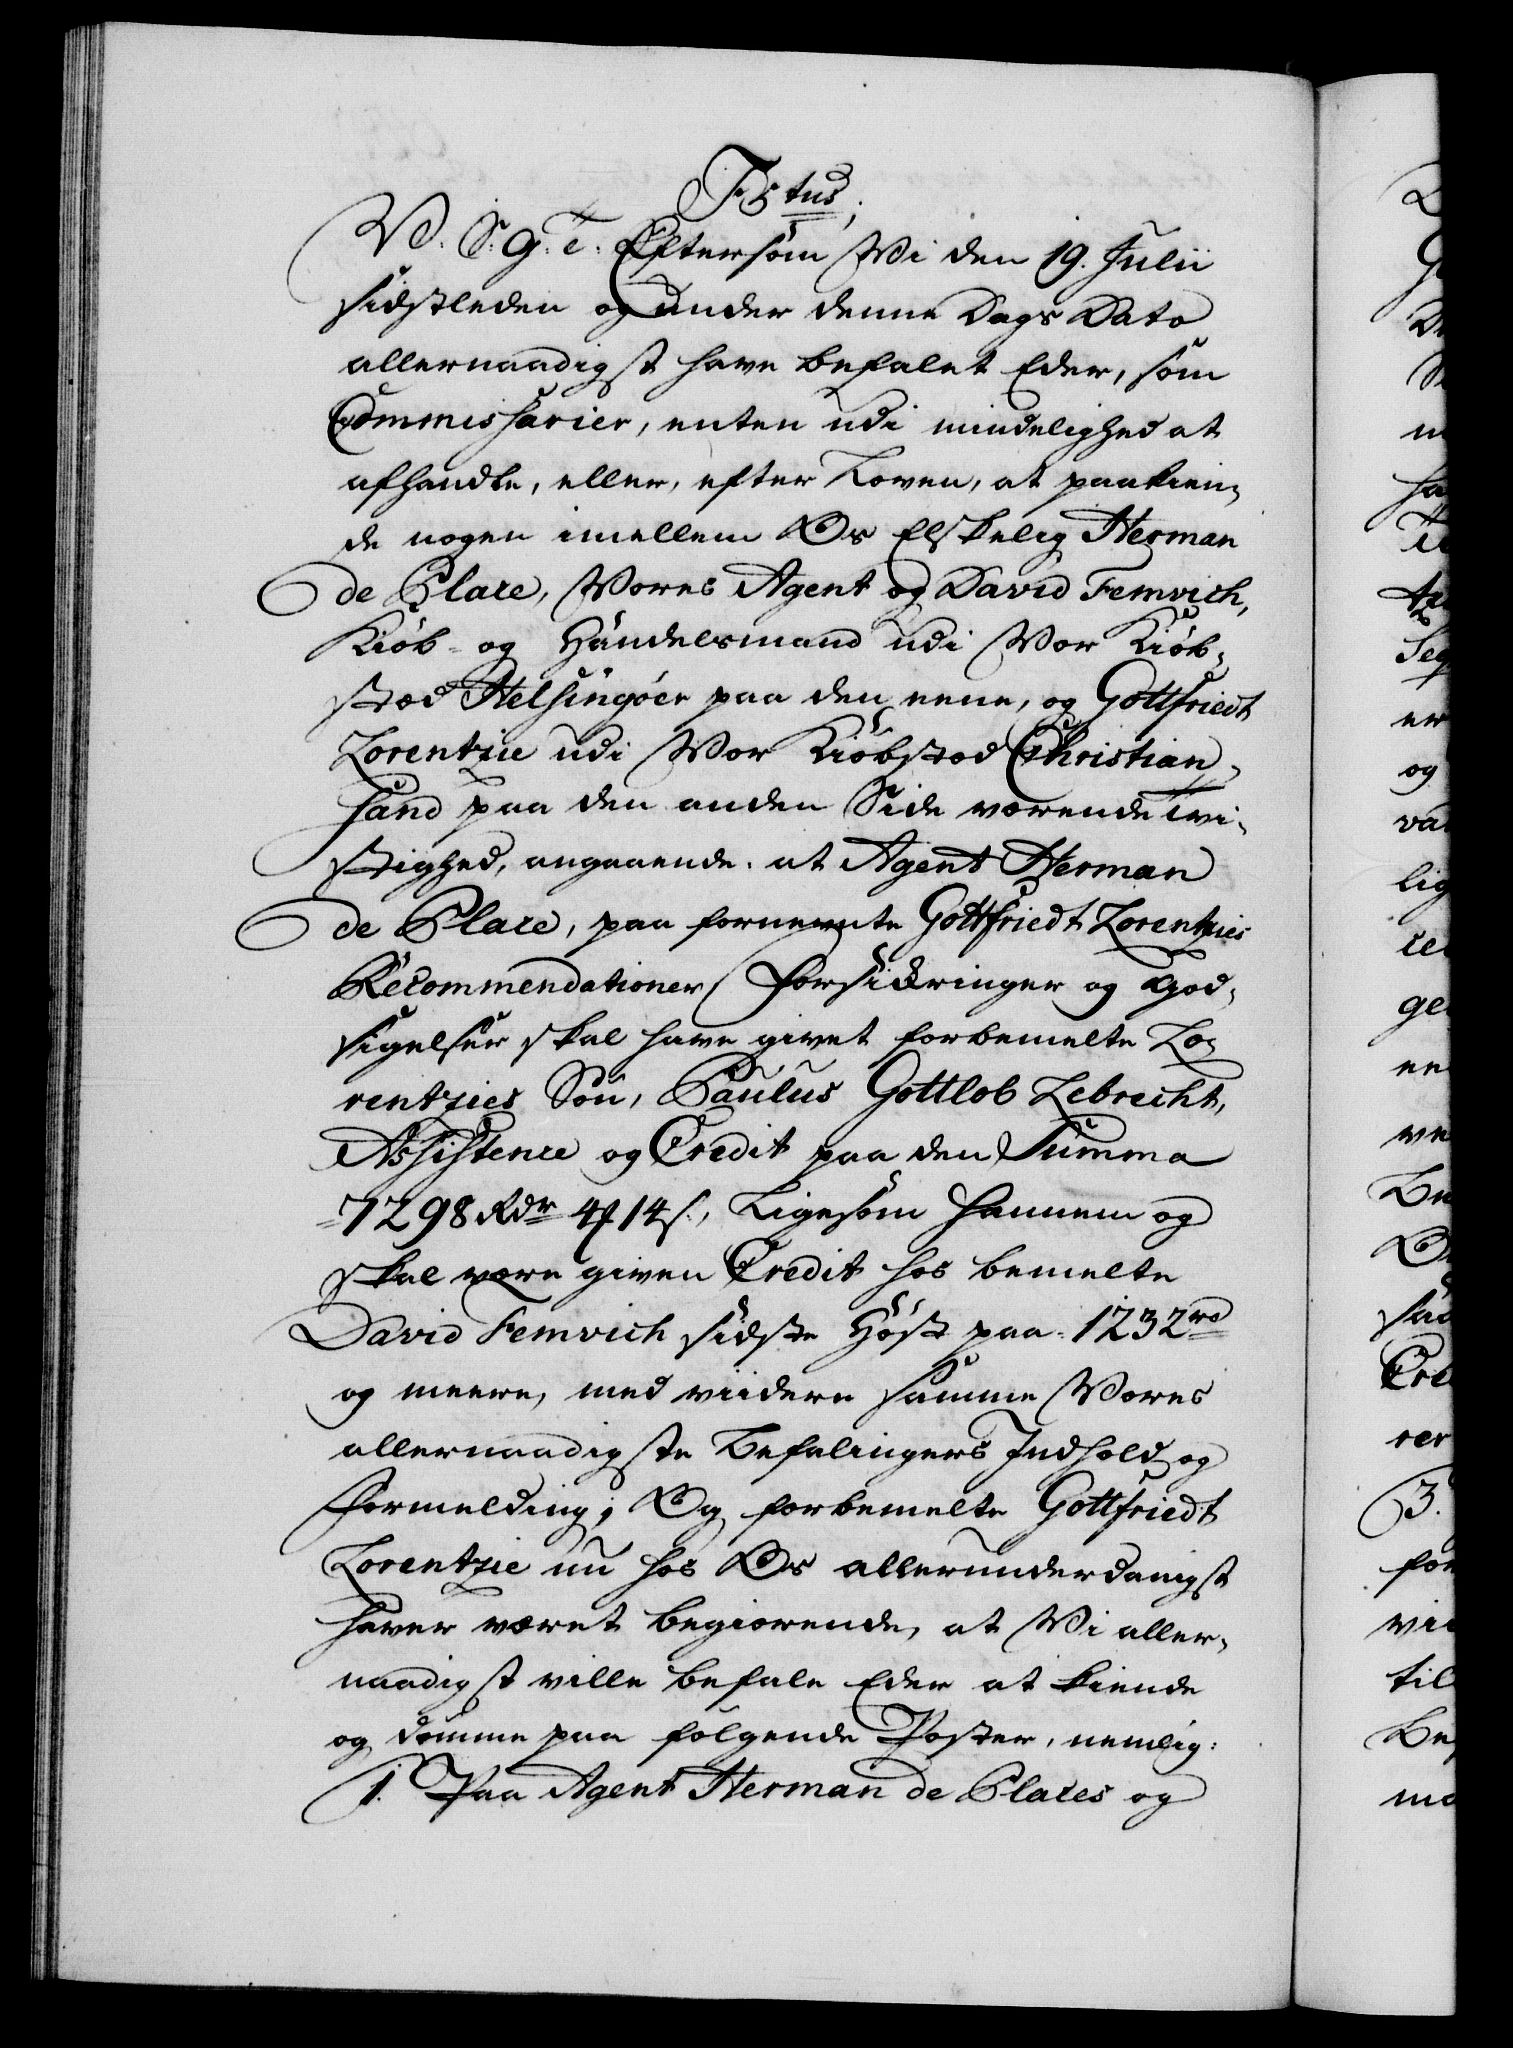 F 5tus,
W: S: G: T: Eftersom Wi den 19. Julii
sidstleden og under denne Dags Dato
allernaadigst have befalet Eder, som
Commissarier, enten udi mindelighed at
afhandle, eller, efter Loven, at paakien¬
de nogen imellem Os Elskelig Herman
de Place, Vores Agent og David Femvich,
Kiøb- og Handelsmand udi Vor Kiøb¬
stæd Helsingøer paa den eene, og Gottfriedt
Lorentzie udi Vor Kiøbstæd Christian¬
sand paa den anden Side værende Tvi¬
stighed, angaaende. at Agent Herman
de Place, paa fornevnte Gottfriedt Lorentzies
Recommendationer, Forsikringer og God¬
sigelser skal have givet forbemelte Lo¬
rentzies Søn, Paulus Gottlob Lebrecht,
Assistence og Credit paa den Summa
7298 Rdr 4 14 s., Ligesom hannem og
skal være given Credit hos bemelte
David Femvich sidste Høst paa 1232 rd
og meere, med viidere samme Vores
allernaadigste Befalingers Indhold og
Formelding; Og forbemelte Gottfriedt
Lorentzie nu hos Os allerunderdanigst
haver været begiærende, at Wi aller¬
naadigst ville befale Eder at kiende
og dømme paa følgende Poster, nemlig:
1. Paa Agent Herman de Places og